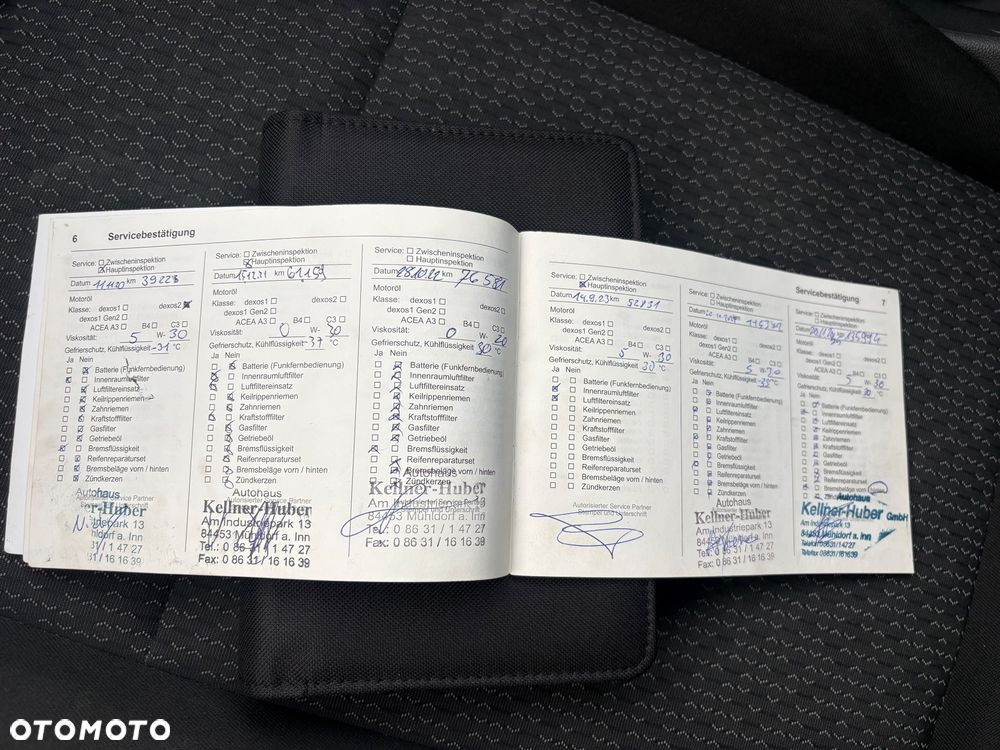 6 Servicebestätigung
Service: Zwischeninspektion
Hauptinspektion
Datum 11.11.20 km 39228
Motoröl
Klasse: dexos1 dexos2
dexos1 Gen2
ACEA A3 B4 C3
Viskosität: 5 W- 30
Gefrierschutz, Kühlflüssigkeit -31 °C
Ja Nein
Batterie (Funkfernbedienung)
Innenraumluftfilter
Luftfiltereinsatz
Keilrippenriemen
Zahnriemen
Kraftstofffilter
Gasfilter
Getriebeöl
Bremsflüssigkeit
Reifenreparaturset
Bremsbeläge vorn / hinten
Zündkerzen
Autorisierter Service Partner
Autohaus
Service: Zwischeninspektion
Hauptinspektion
Datum 15.12.21 km
Motoröl
Klasse: dexos1 dexos2
dexos1 Gen2
ACEA A3 B4 C3
Viskosität: 0 W- 30
Gefrierschutz, Kühlflüssigkeit -37 °C
Ja Nein
Batterie (Funkfernbedienung)
Innenraumluftfilter
Luftfiltereinsatz
Keilrippenriemen
Zahnriemen
Kraftstofffilter
Gasfilter
Getriebeöl
Bremsflüssigkeit
Reifenreparaturset
Bremsbeläge vorn / hinten
Zündkerzen
Autohaus
Kellner-Huber
Am Industriepark 13
84453 Mühldorf a. Inn
Tel.: 0 86 31 / 1 47 27
Fax: 0 86 31 / 16 16 39
Service: Zwischeninspektion
Hauptinspektion
Datum 28.10.22 km 76 581
Motoröl
Klasse: dexos1 dexos2
dexos1 Gen2
ACEA A3 B4 C3
Viskosität: 0 W- 20
Gefrierschutz, Kühlflüssigkeit 30 °C
Ja Nein
Batterie (Funkfernbedienung)
Innenraumluftfilter
Luftfiltereinsatz
Keilrippenriemen
Zahnriemen
Kraftstofffilter
Gasfilter
Getriebeöl
Bremsflüssigkeit
Reifenreparaturset
Bremsbeläge vorn / hinten
Zündkerzen
Autohaus
Kellner-Huber
Am Industriepark 13
84453 Mühldorf a. Inn
Tel.: 0 86 31 / 1 47 27
Fax: 0 86 31 / 16 16 39
Service: Zwischeninspektion
Hauptinspektion
Datum 14.9.23 km
Motoröl
Klasse: dexos1 dexos2
dexos1 Gen2
ACEA A3 B4 C3
Viskosität: 5 W- 30
Gefrierschutz, Kühlflüssigkeit 30 °C
Ja Nein
Batterie (Funkfernbedienung)
Innenraumluftfilter
Luftfiltereinsatz
Keilrippenriemen
Zahnriemen
Kraftstofffilter
Gasfilter
Getriebeöl
Bremsflüssigkeit
Reifenreparaturset
Bremsbeläge vorn / hinten
Zündkerzen
Autorisierter Service Partner
Stempel und Unterschrift
Service: Zwischeninspektion
Hauptinspektion
Datum
Motoröl
Klasse: dexos1 dexos2
dexos1 Gen2
ACEA A3 B4 C3
Viskosität: 5 W- 30
Gefrierschutz, Kühlflüssigkeit -35 °C
Ja Nein
Batterie (Funkfernbedienung)
Innenraumluftfilter
Luftfiltereinsatz
Keilrippenriemen
Zahnriemen
Kraftstofffilter
Gasfilter
Getriebeöl
Bremsflüssigkeit
Reifenreparaturset
Bremsbeläge vorn / hinten
Zündkerzen
Autohaus
Kellner-Huber
Am Industriepark 13
84453 Mühldorf a. Inn
Tel.: 0 86 31 / 1 47 27
Fax: 0 86 31 / 16 16 39
Servicebestätigung 7
Service: Zwischeninspektion
Hauptinspektion
Datum 135994
Motoröl
Klasse: dexos1 dexos2
dexos1 Gen2
ACEA A3 B4 C3
Viskosität: 5 W- 30
Gefrierschutz, Kühlflüssigkeit °C
Ja Nein
Batterie (Funkfernbedienung)
Innenraumluftfilter
Luftfiltereinsatz
Keilrippenriemen
Zahnriemen
Kraftstofffilter
Gasfilter
Getriebeöl
Bremsflüssigkeit
Reifenreparaturset
Bremsbeläge vorn / hinten
Autohaus
Kellner-Huber GmbH
84453 Mühldorf a. Inn
Telefon 08631/14727
Telefax 08631/161639
OTOMOTO